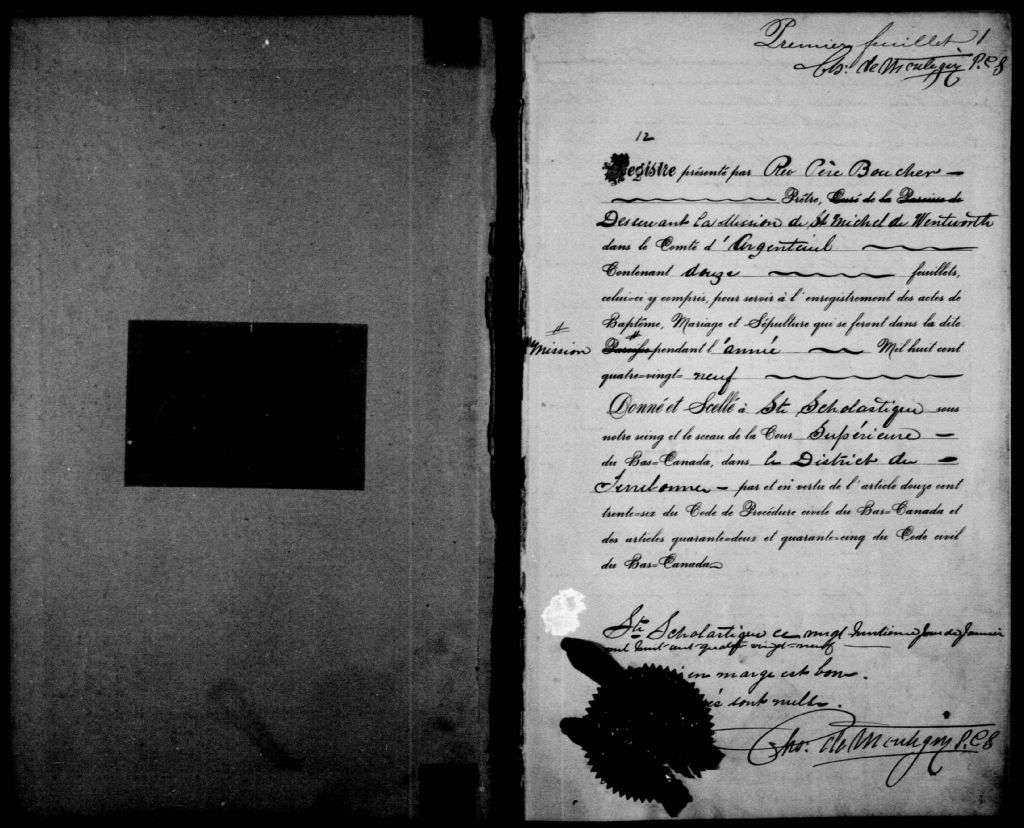 Premier feuillet 1
Chs. de Montigny P.C.S
12
Registre présenté par Rev Père Boucher
Prêtre, Curé de la Paroisse de
Desservant la Mission de St Michel de Wentworth
dans le Comté d'Argenteuil
Contenant douze feuillets,
celui-ci y compris, pour servir à l'enregistrement des actes de
Baptême, Mariage et Sépulture qui se feront dans la dite
#
# Mission Paroisse pendant l'année Mil huit cent
quatre=vingt= neuf
Donné et Scellé à Ste Scholastique sous
notre seing et le sceau de la Cour Supérieure
du Bas=Canada, dans le District de
Terrebonne par et en vertu de l'article douze cent
trente=six du Code de Procédure civile du Bas=Canada et
des articles quarante=deux et quarante=cinq du Code civil
du Bas=Canada
Ste Scholastique ce vingt huitieme Jour de Janvier
mil huit cent quatre vingt-neuf
en marge est bon.
sont nulls.
Chs. de Montigny P.C.S